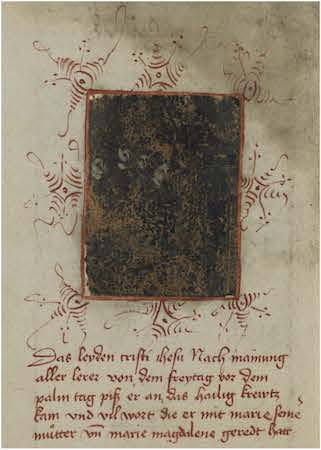 Das leyden cristi ihesu Nach mainung
aller lerer von dem freytag vor dem
palm tag piß er an das hailig krewtz
kam vnd vil wort die er mit marie seine
muͦtter vn̄ marie magdalene geredt hatt